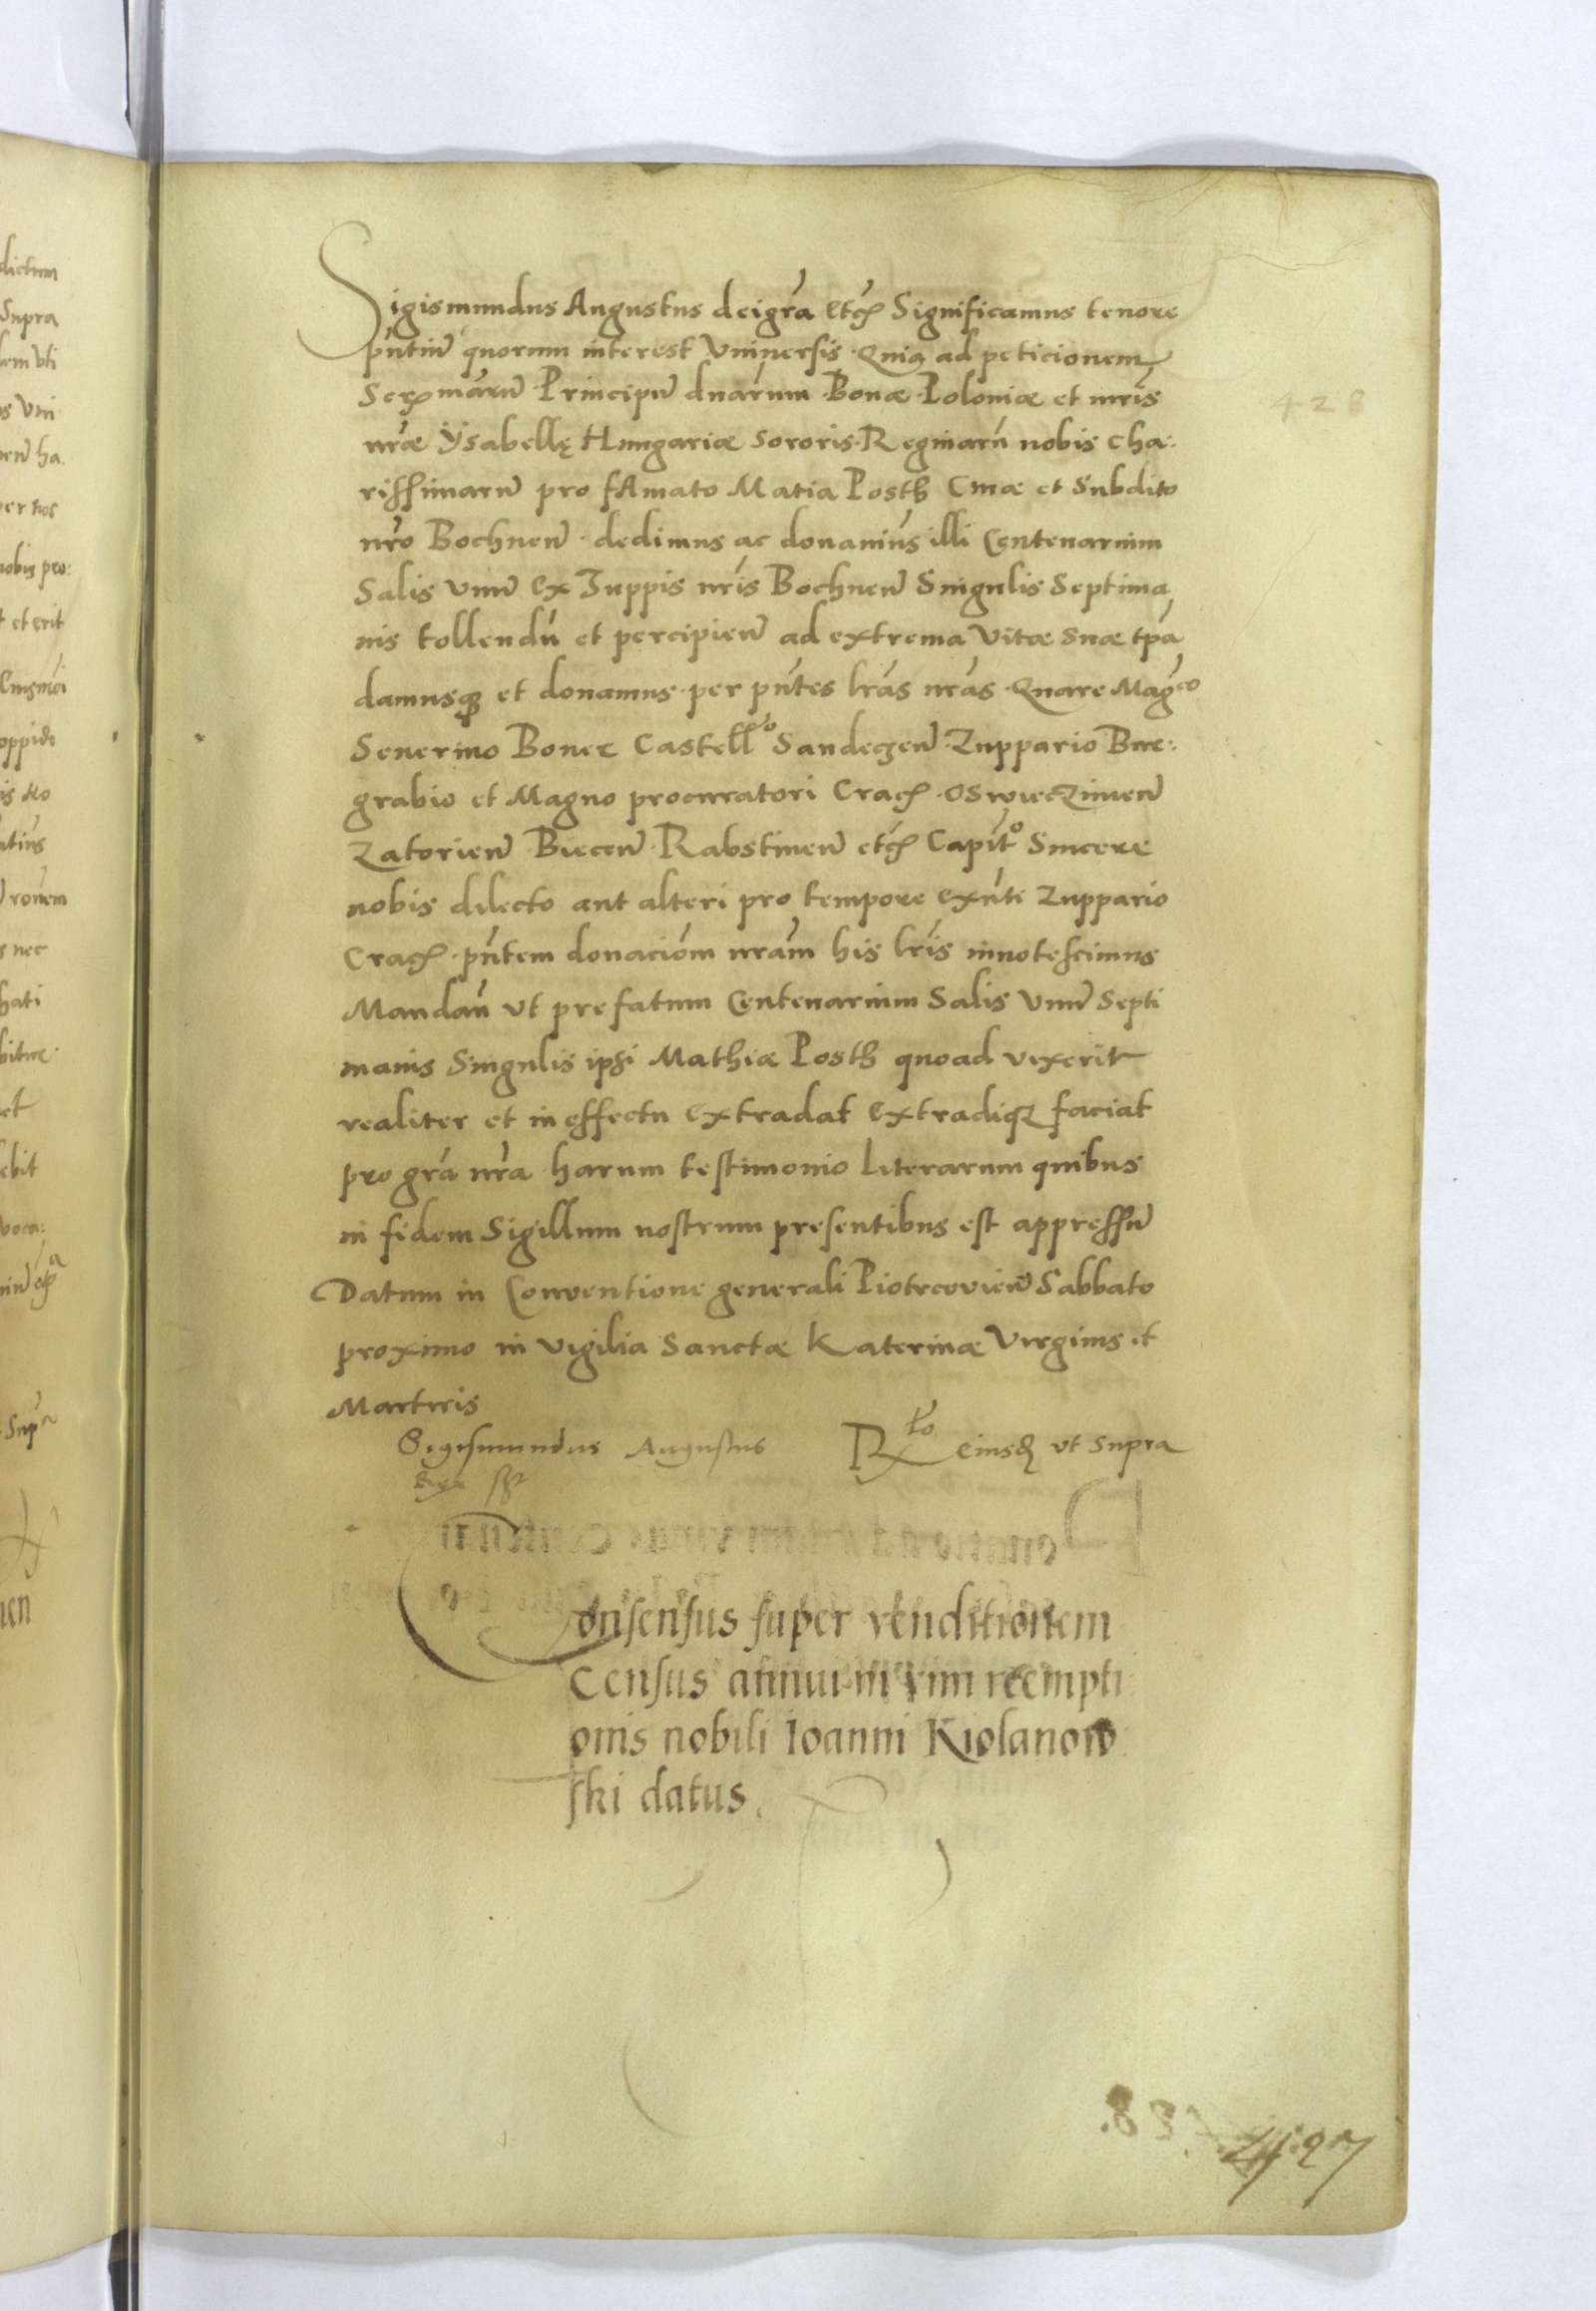 Sigismundus Augustus dei gra etc Significamus tenore
pntiu quorum interest Vniuersis Quia ad peticionem
Serxmaru Principu dnarum Bonæ Poloniæ et mris
nræ Ysabellę Hungariæ Sororis Reginaru nobis cha:
rissimaru pro fAmato Matia Posth Cmæ et Subdito
nro Bochnen dedimus ac donauimus illi Centenarium
Salis Vnu ex Zuppis nris Bochnen Singulis Septima
nis tollendu et percipien ad extrema Vitæ Suæ tpa
damusq et donamus per pntes lras nras Quare Magco
Seuerino Boner Castello Sandeczen Zuppario Bur:
grabio et Magno procuratori Crac Oswieczimen
Zatorien Biecen Rabstinen etc Capito Sincere
nobis dilecto aut alteri pro tempore exnti Zuppario
Crac pntem donaciom nram his lris innotescimus
Mandan vt prefatum Centenarium Salis Vnu Septi
manis Singulis ipsi Mathiæ Posth quoad vixerit
realiter et in effectu extradat extradiq faciat
pro gra nra harum testimonio Literarum quibus
in fidem Sigillum nostrum presentibus est appressu
Datum in Conventione generali Piotrcovien Sabbato
proximo in vigilia Sanctæ Katerinæ Virginis et
Martiris
Sigismundus Augustus Rx to eiusd vt supra
Rex sst
Consensus super venditionem
Census annui in vim reempti
onis nobili Ioanni Kiolanow
ski datus
428
837
427